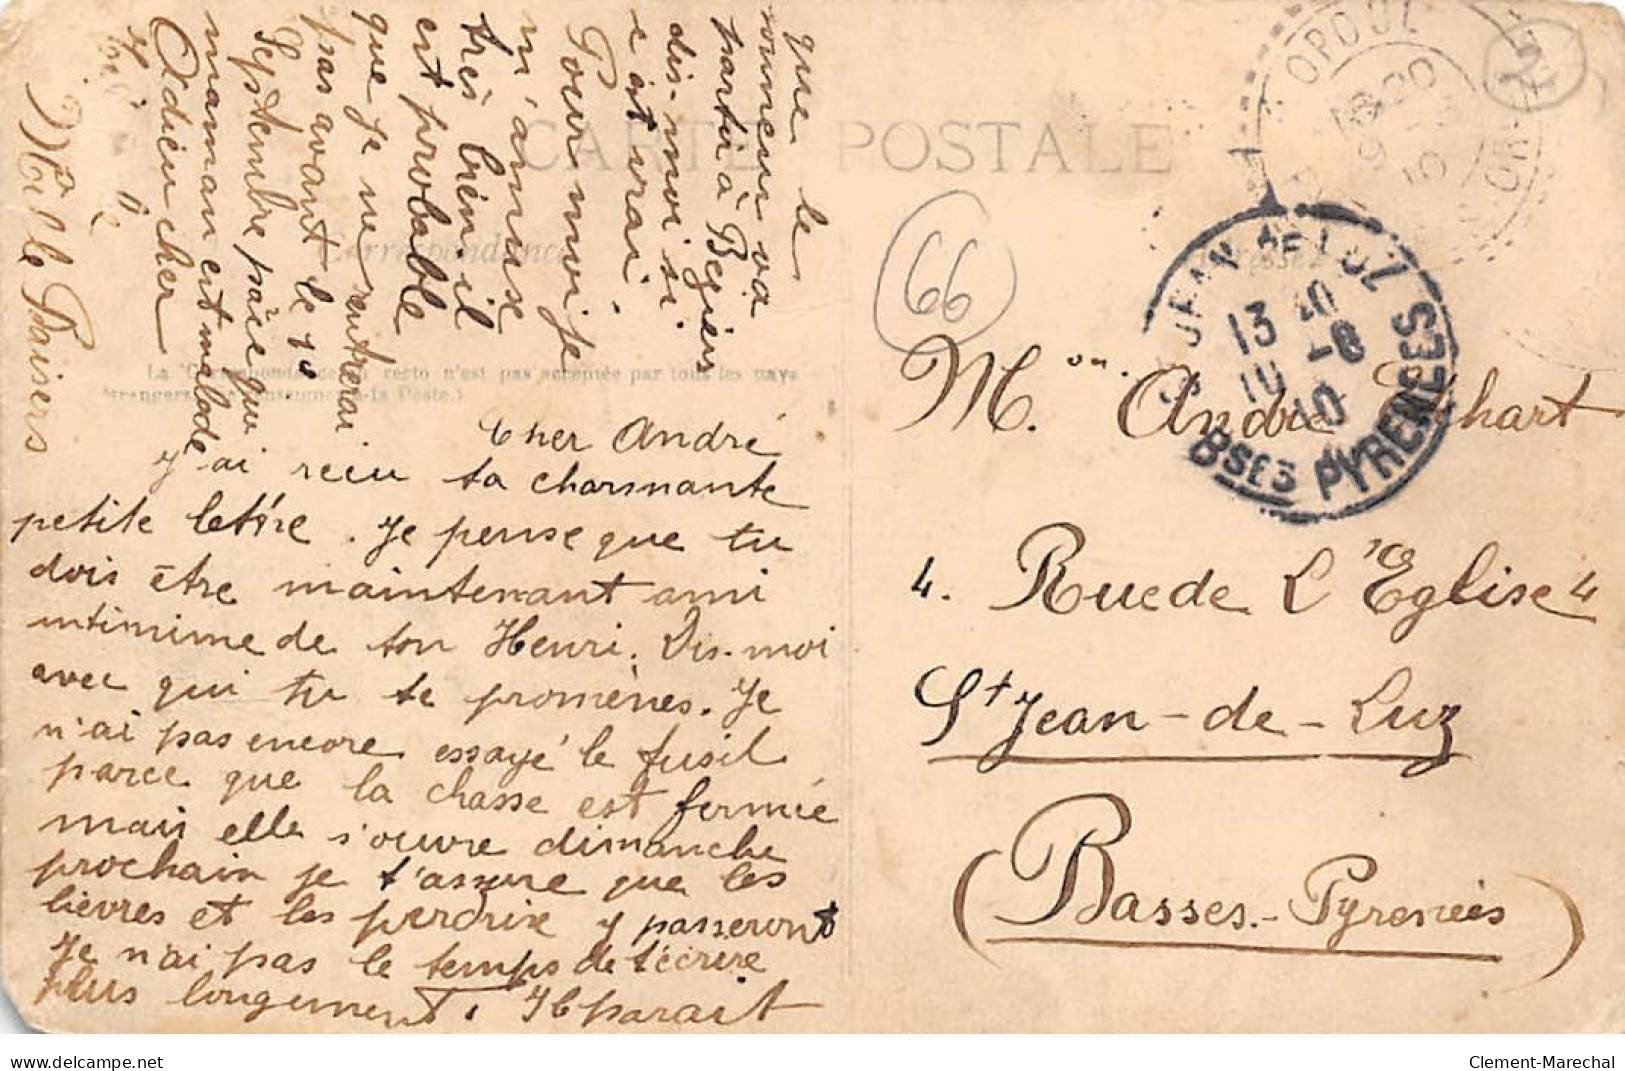 CARTE POSTALE
Correspondance
La Correspondance au recto n'est pas acceptée par tous les pays
étrangers. (Se renseigner à la Poste.)
Cher André
J'ai recu ta charmante
petite lettre. Je pense que tu
dois être maintenant ami
intimime de ton Henri. Dis-moi
avec qui tu te promènes. Je
n'ai pas encore essayé le fusil
parce que la chasse est fermée
mais elle s'ouvre dimanche
prochain je t'assure que les
lièvres et les perdrix y passeront
Je n'ai pas le temps de t'écrire
plus longement. Il parait
que le
monsieur va
partir à Beziers
dis-moi si
c'est vrai.
Pour moi je
m'amuse
très bien il
est probable
que je ne rentrerai
pas avant le 90
Septembre parce que
maman est malade
Adieu cher
Mille Baisers
66
OPOUL
ST JEAN DE LUZ
13 40
10 -8
10
BSES PYRENEES
Mon. André Ethart
4. Rue de L'Eglise 4
St Jean-de-Luz
(Basses-Pyrenées)
delcampe.net
Clement-Marechal